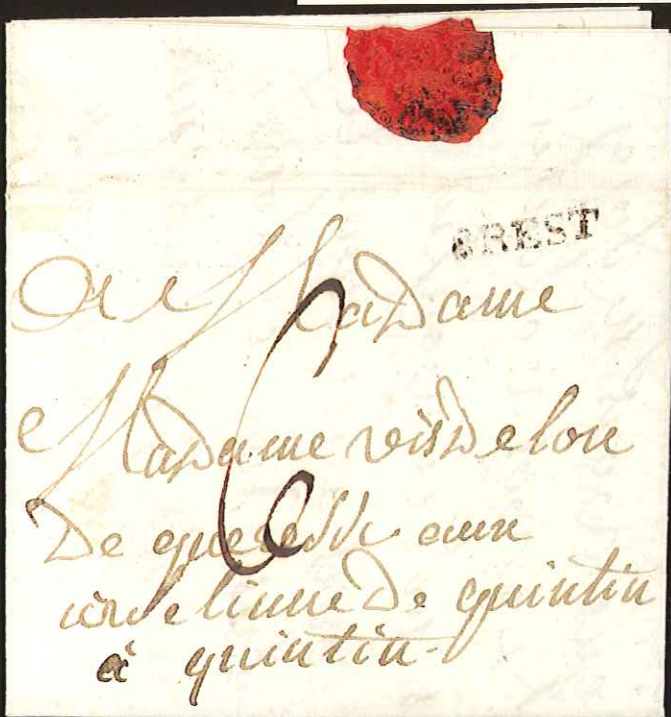 BREST
A Madame
Madame visdelou
De aux
urseline De quintin
à quintin
6